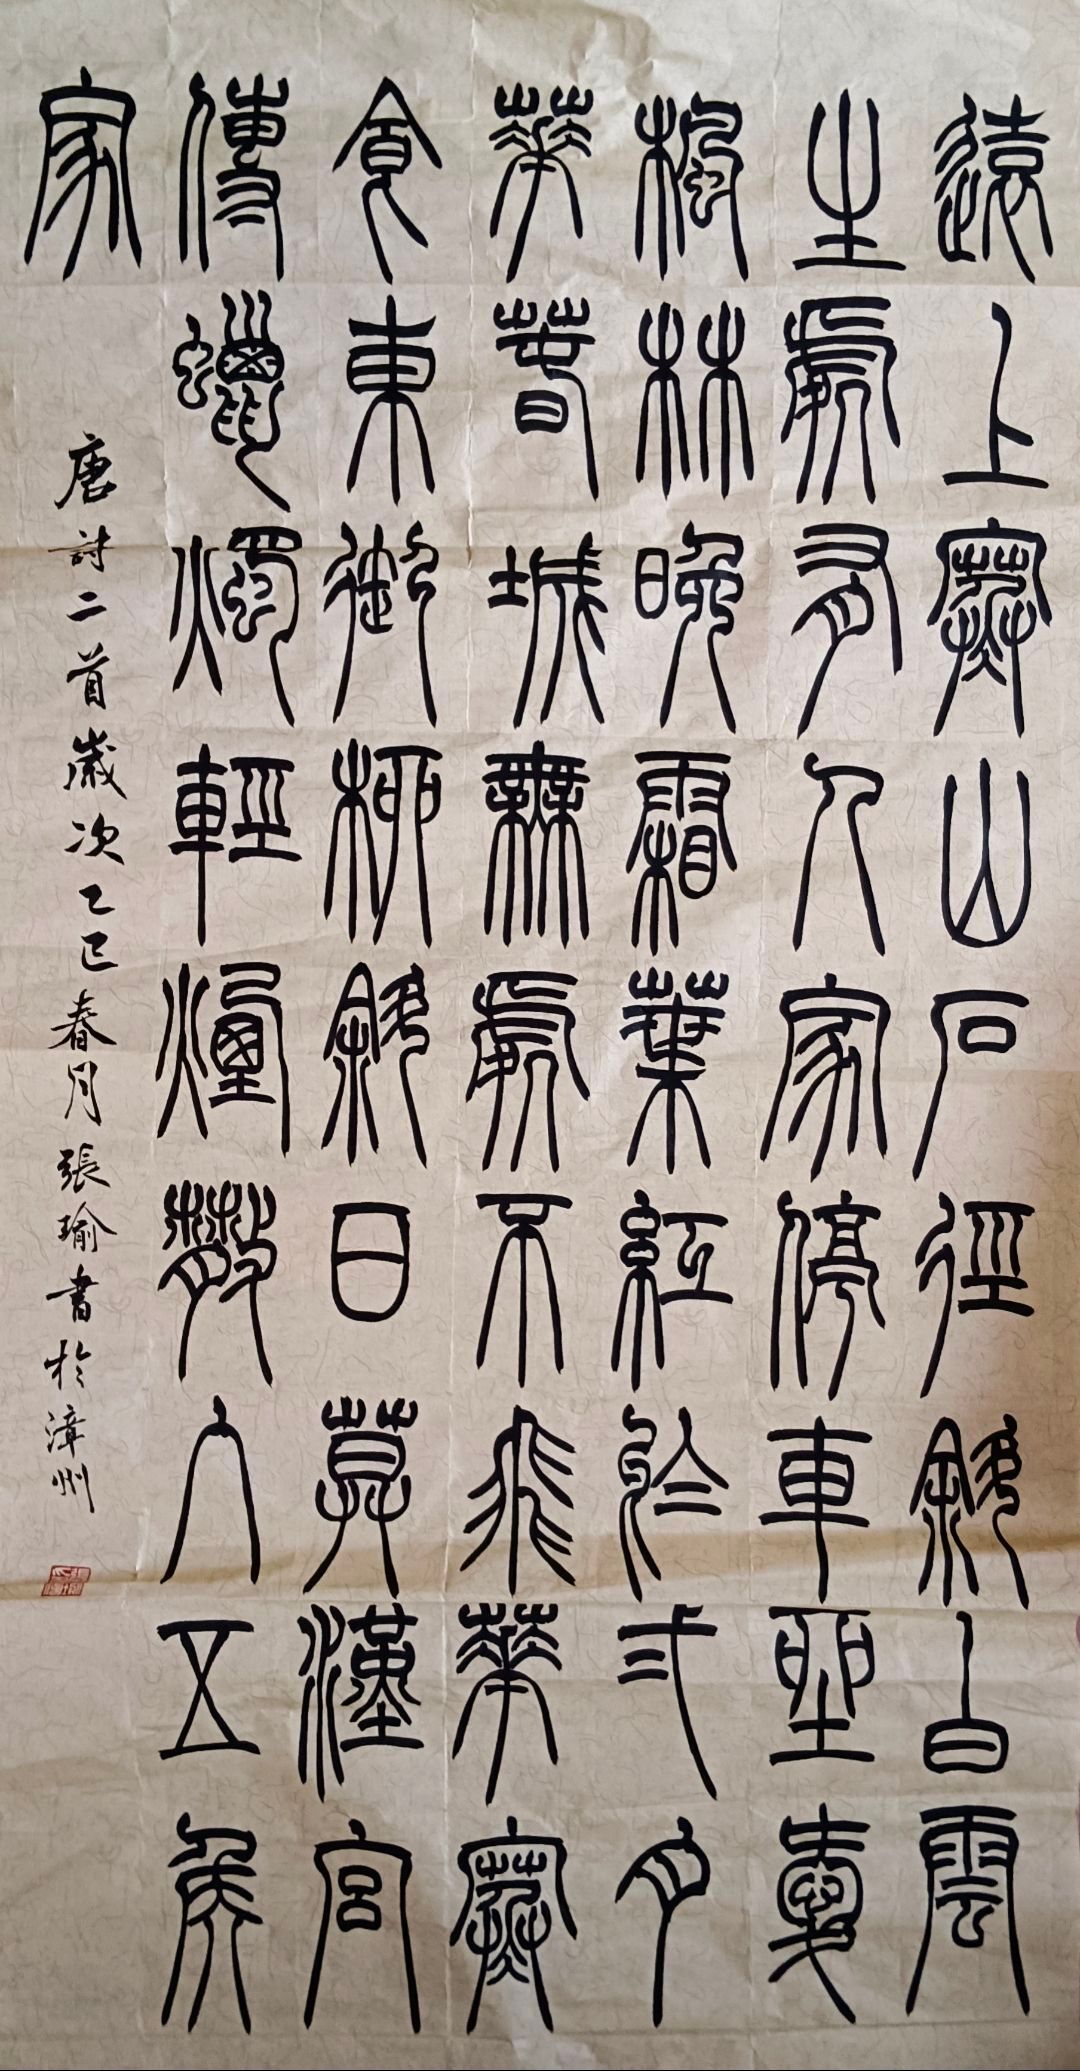 遠上寒山石徑斜白雲
生處有人家停車坐愛
楓林晚霜葉紅於弍月
華春城無處不飛華寒
食東御柳斜日莫漢宮
傳蠟燭輕煙散入五侯
家
唐詩二首歲次乙巳春月張瑜書於漳州